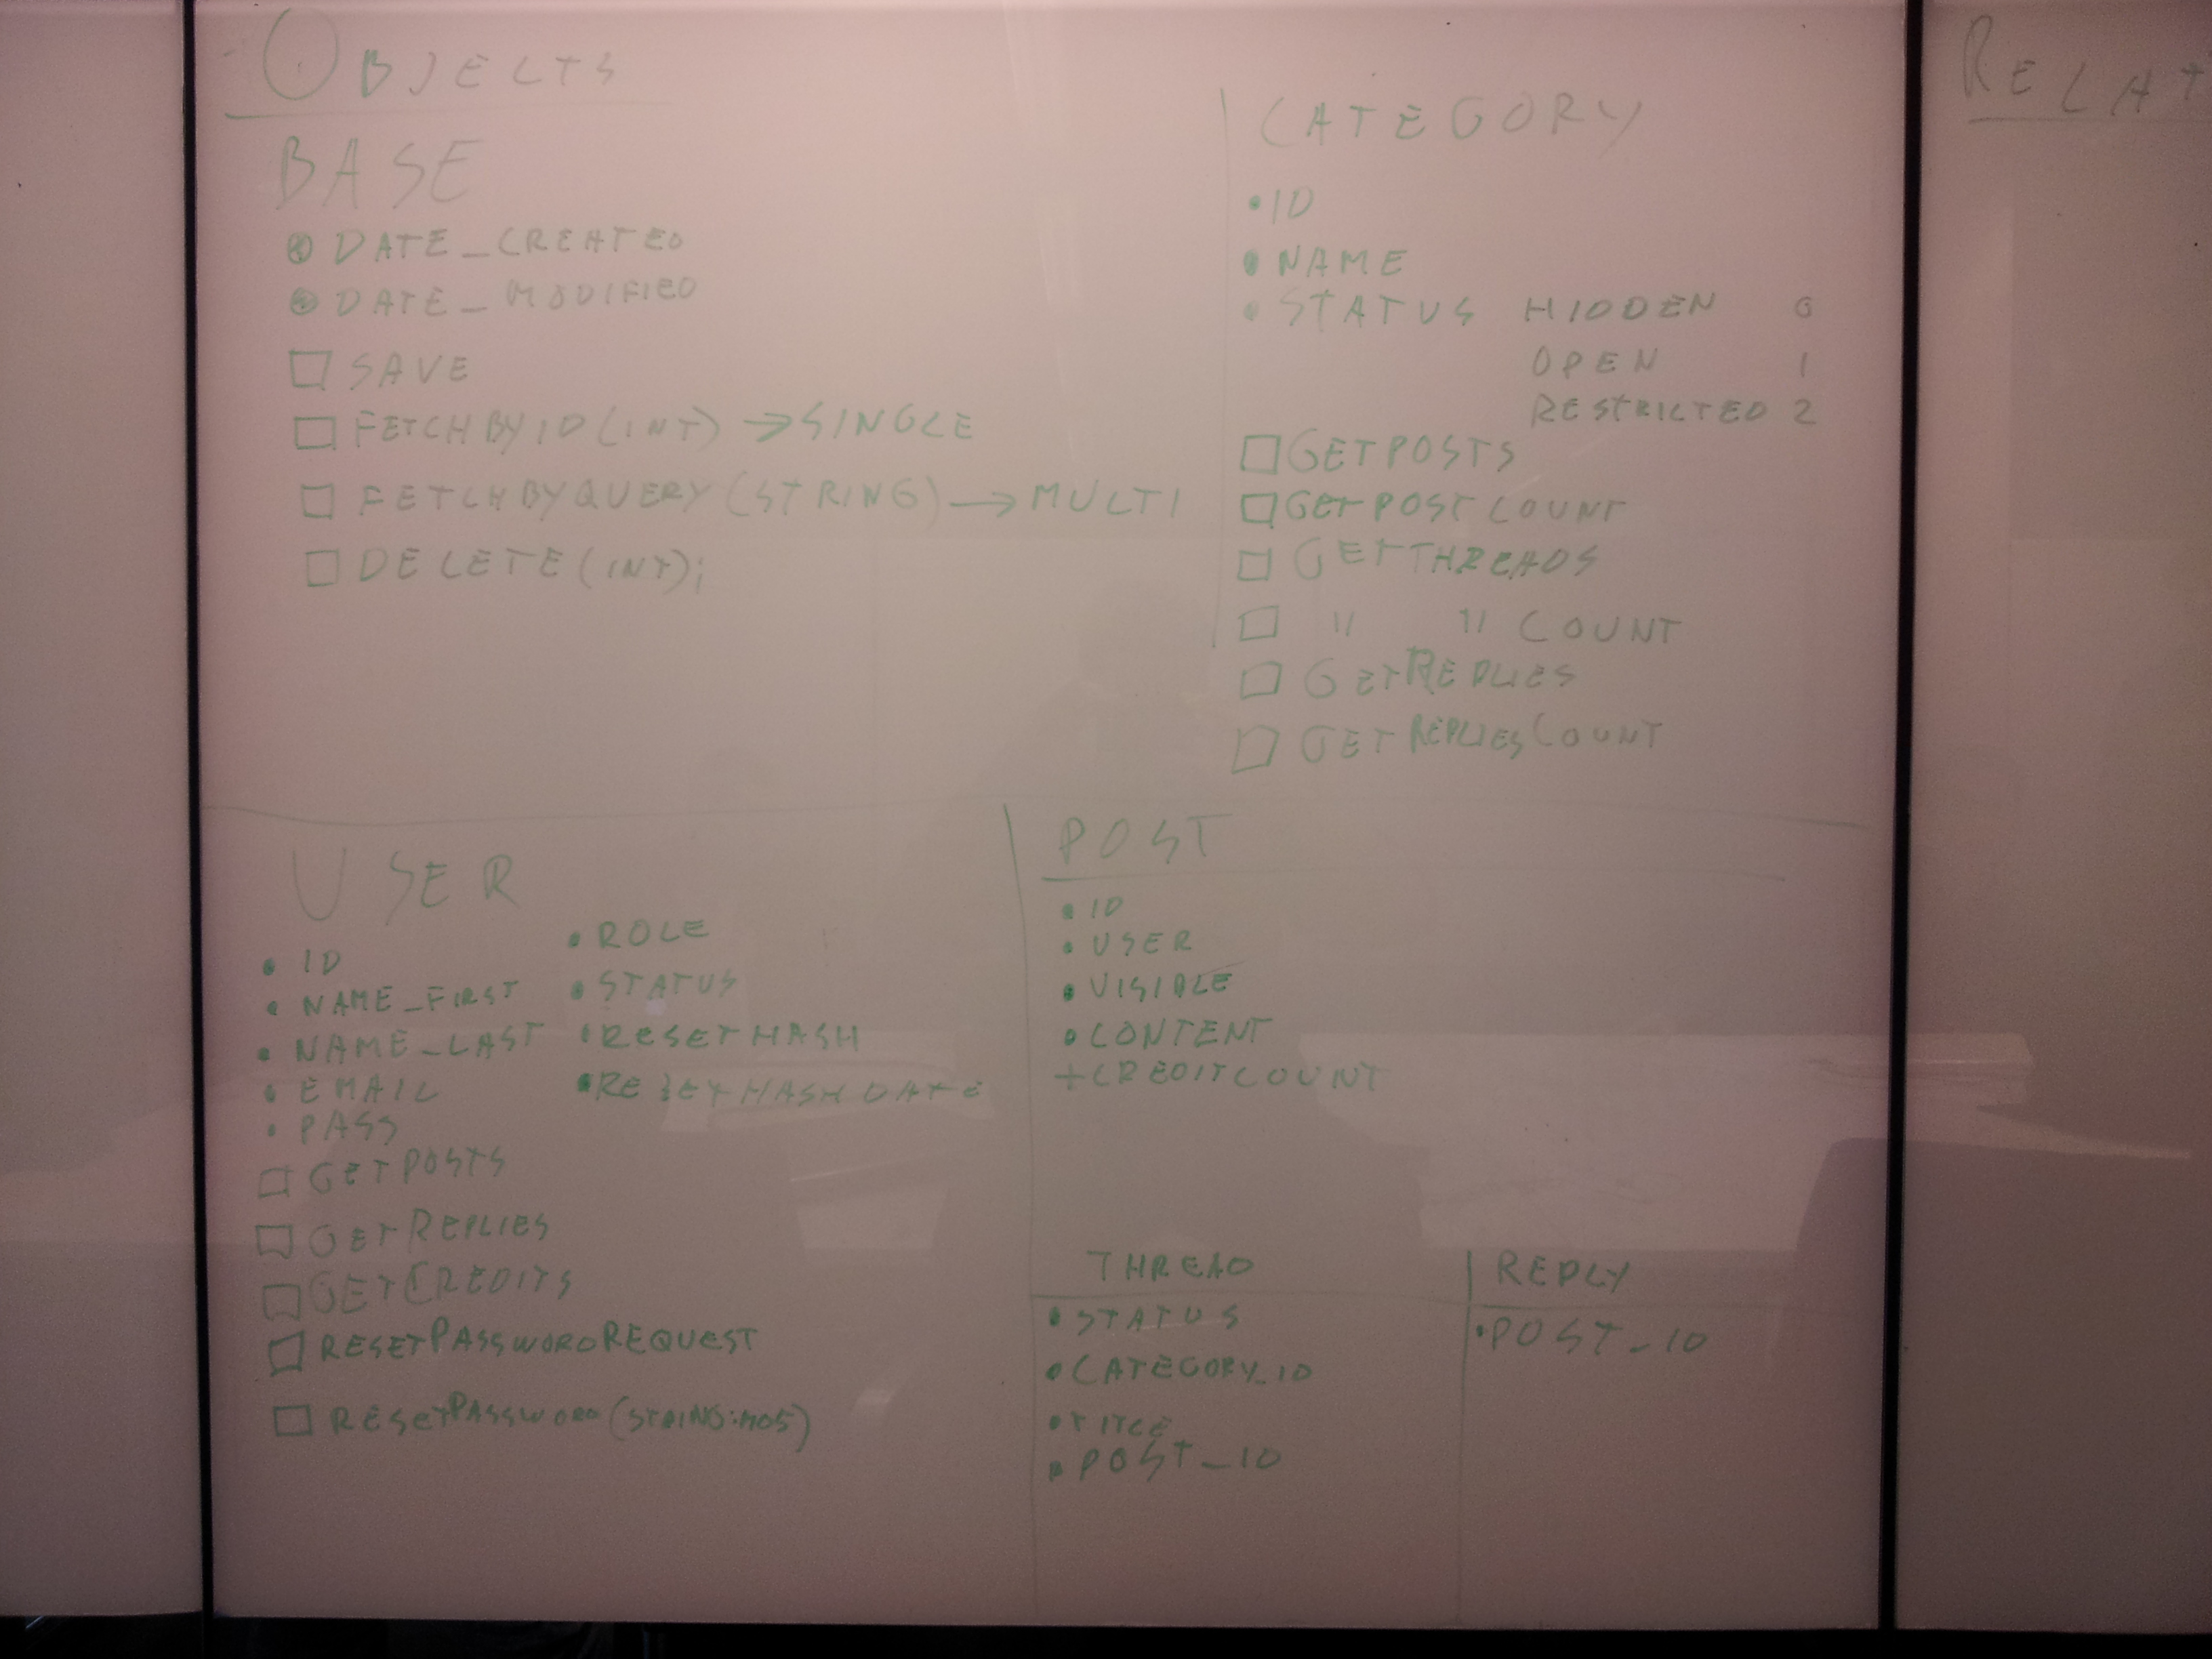 OBJECTS
BASE
DATE_CREATED
DATE_MODIFIED
SAVE
FETCHBYID(INT) → SINGLE
FETCHBYQUERY(STRING) → MULTI
DELETE(INT);
CATEGORY
• ID
• NAME
• STATUS HIDDEN 0
OPEN 1
RESTRICTED 2
GETPOSTS
GETPOSTCOUNT
GETTHREADS
" " COUNT
GETREPLIES
GETREPLIESCOUNT
RELAT
USER
• ID
• NAME_FIRST
• NAME_LAST
• EMAIL
• PASS
• ROLE
• STATUS
• RESETHASH
• RESETHASHDATE
GETPOSTS
GETREPLIES
GETCREDITS
RESETPASSWORDREQUEST
RESETPASSWORD(STRING:MD5)
POST
• ID
• USER
• VISIBLE
• CONTENT
+CREDITCOUNT
THREAD
• STATUS
• CATEGORY_ID
• TITLE
• POST_ID
REPLY
• POST_ID